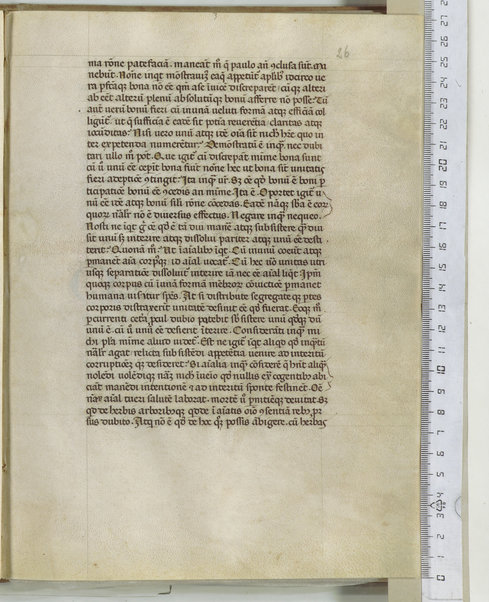 26
ma rōne patefaciā. maneāt m̄ q̄ paulo an̄ ꝯclusa sūt. ma
nebūt. Nōne inqt mōstravim̄
bona nō eē
ab eēt alterū plenū absolutūqꝫ bonū afferre nō posse. Tū
aut̄ verū bonū fieri cū inunā veluti formā atqꝫ efficiā col
ligūt̄ ut q̄ sufficiā ē eadē sit potīa reverētia claritas atqꝫ
iocūditas. Nisi vero unū atqꝫ idē oīa sīt nich̄ hr̄e quo in
ter expetenda numerētur. Demōstratū ē inqꝫ nec dubi
tari ullo m̄ pōt. Que igit̄ cū discrepāt mīme bona sunt
cū ū unū eē cepīt bona fiūt nōne hec ut bona sīt unitatꝭ
fieri adeptiōe ꝯtingit. Ita inqꝫ ur̄. Sꝫ oē qd̄ bonū ē boni p
ticipatiōe bonū eē ꝯcedis an mīme. Ita ē. Oportet igit̄ u
nū eē idē atqꝫ bonū sili rōne cōcedas. Eadē nāqꝫ sb̄a ē eor̄
quorꝫ nāl̄r nō ē diversus effectus. Negare inqꝫ nequeo.
Nosti ne igt̄ oē qd̄ ē tā diu manē atqꝫ subsistere q̄diu
sit unū sꝫ interire atqꝫ dissolvi pariter atqꝫ unū eē desti
terit. Quonā m̄. Ut ī aīalibꝫ iqt̄. Cū inunū coeūt atqꝫ
pmanēt aīa corpꝰqꝫ id aīal vocat̄. Cū hec ū unitas utri
usqꝫ separatiōe dissolvit̄ interire iā nec eē aīal liqꝫt. Ipm̄
quoqꝫ corpus cū ī unā formā mēbrorꝫ cōiūctiōe pmanet
humana visit̄ur spēs. At si distribute segregate qꝫ ptes
corporis distraxerīt unitatē desinit eē qd̄ fuerat. Eoqꝫ m̄
pcurrenti cetā pcul dubio patebit sb̄sistere unū qd̄qꝫ dū
unū ē. cū ū unū eē desierit īterire. Consideranti inqꝫ mi
chi pla mīme aliud videt̄. Est ne igit̄ iqt̄ aliqd qd̄ inqꝫtū
nāl̄r agat relicta subsistēdi appetētia venire ad interitū
corruptiōēqꝫ desideret. Si aīalia inqꝫ
nolēdi volēdiqꝫ nām nich̄ īvenio qd̄ nullis ex̄ cogentibꝫ abi
ciāt manēdi intentionē ⁊ ad interitū sponte festinet. Oē
nāqꝫ aīal tueri salutē laborat. mortē ū pnitiēqꝫ devitat. Sꝫ
qd̄ de herbis arboribꝰqꝫ ī aīatis oīo ꝯsentiā rebꝫ pr̄
sus dubito. Atqꝫ nō ē qd̄ de hoc possis ābigere. cū herbas